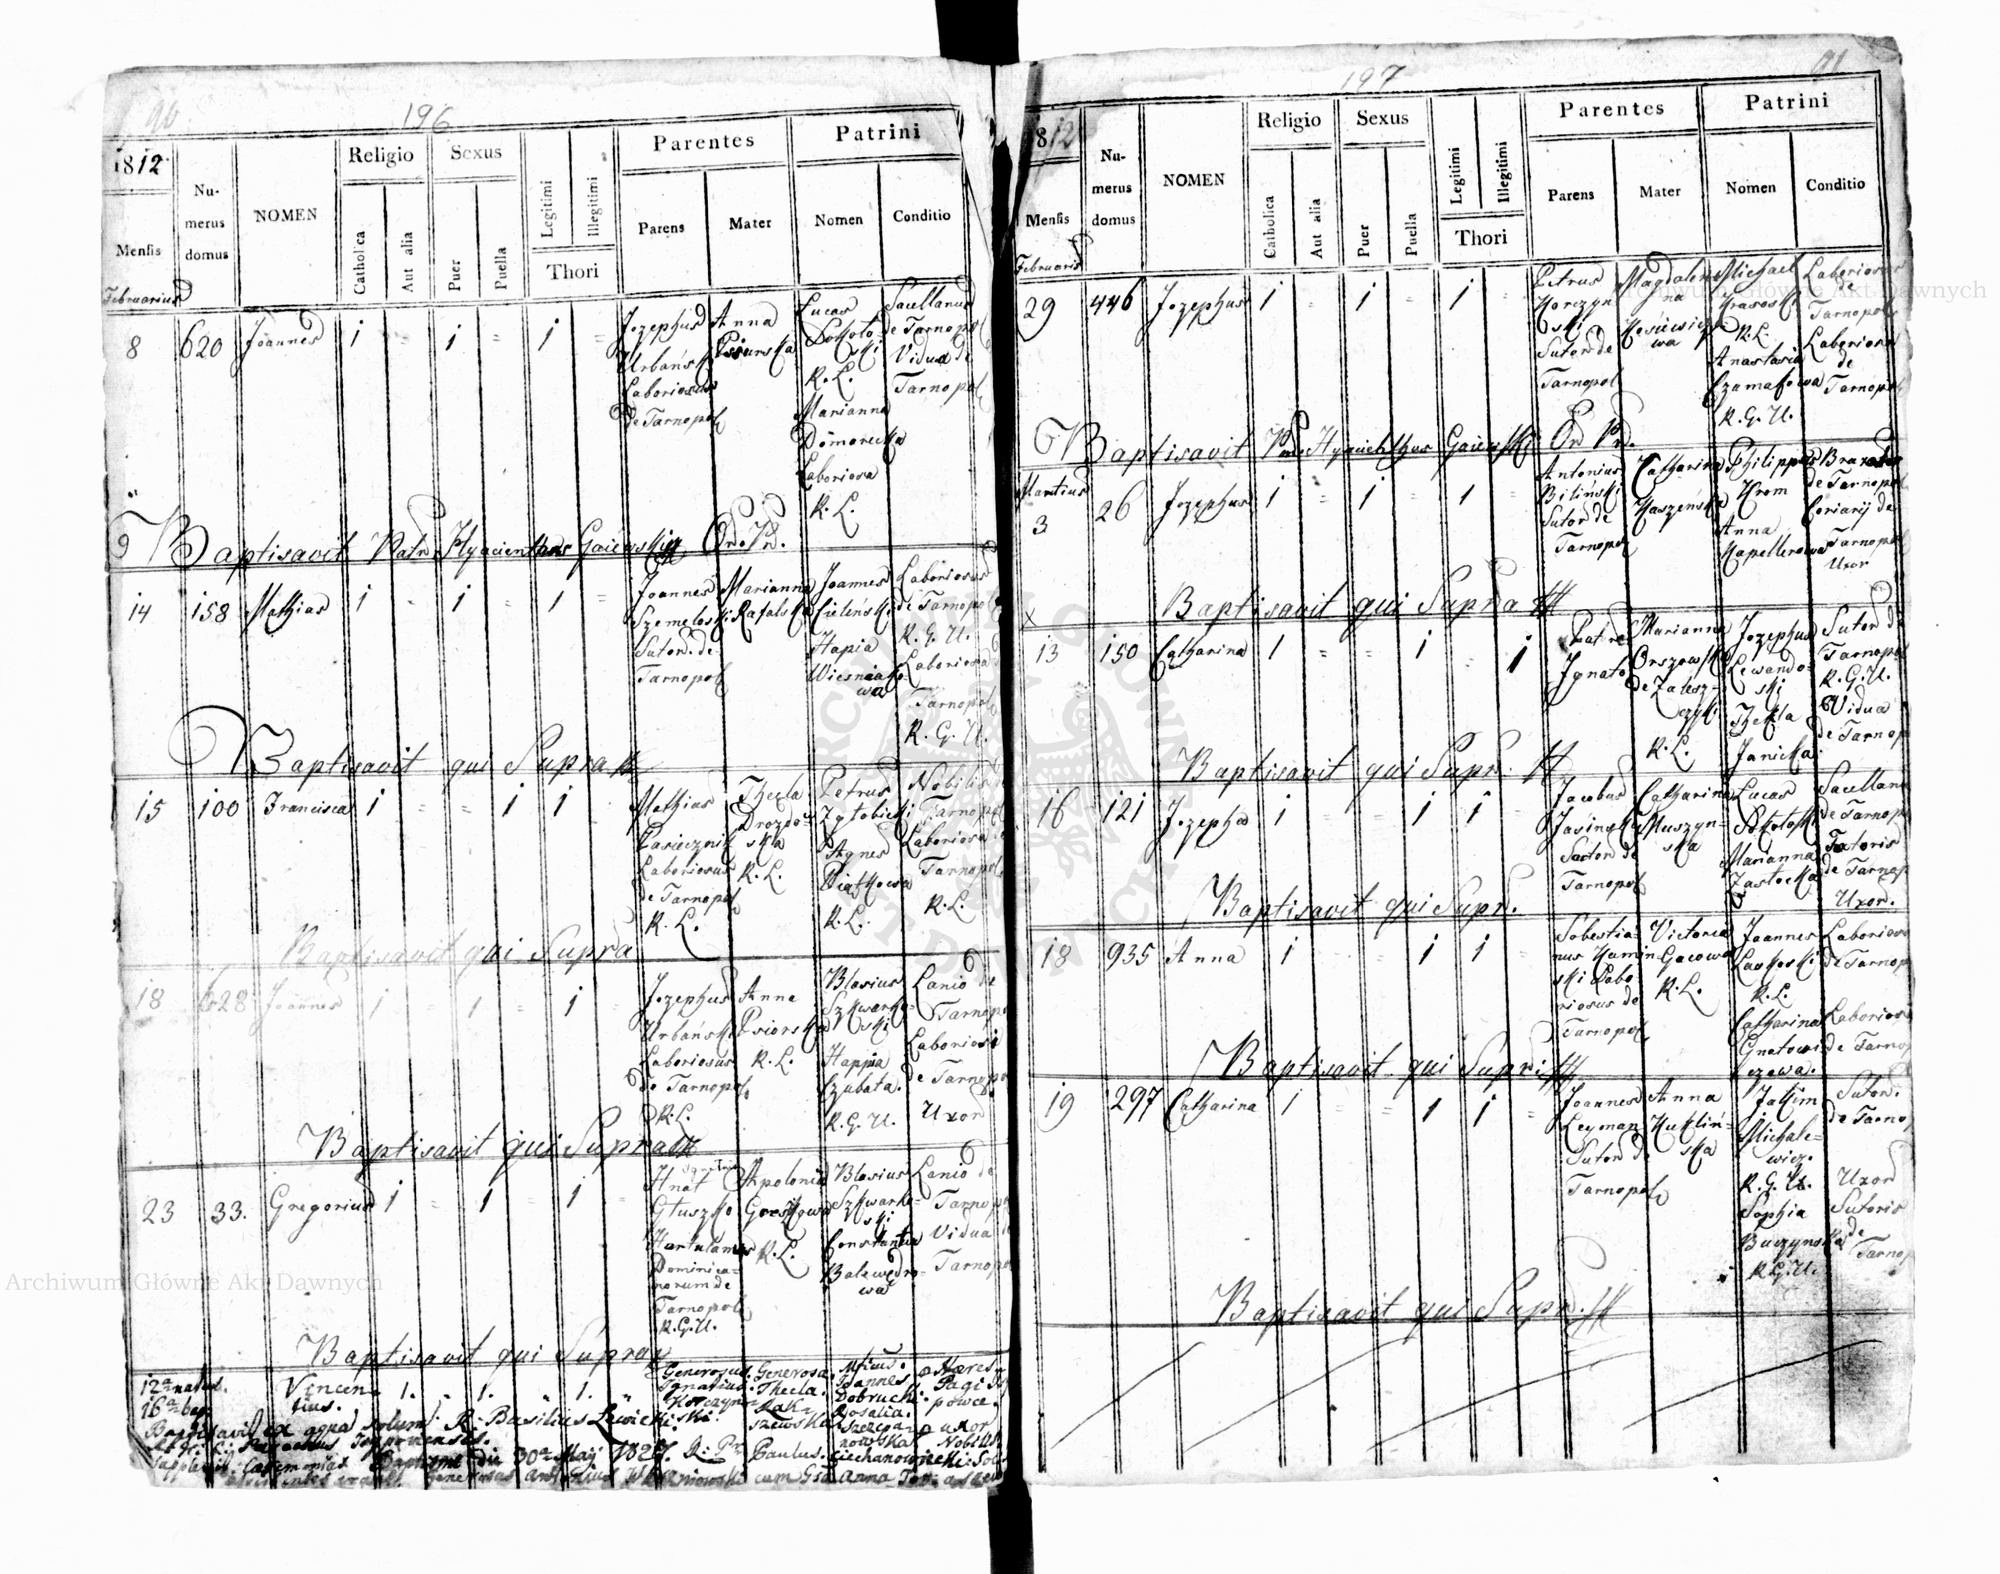 90
196
1812
Mensis
Numerus domus
NOMEN
Religio
Catholica
Aut alia
Sexus
Puer
Puella
Legitimi
Illegitimi
Thori
Parentes
Parens
Mater
Patrini
Nomen
Conditio
Februarius
8 620 Joannes 1 = 1 = 1 =
Jozephus
Urbański
Laboriosus
de Tarnopol
Anna
Lucas
Sokoło
ski
R. L.
Marianna
Domorecka
Laboriosa
R. L.
Sacellanus
de Tarnopol
Vidua de
Tarnopol
Baptisavit Patr Hyacienthus Gaiewski Ord. Pd.
14 158 Mathias 1 = 1 = 1 =
Joannes
Szemeloski
Sutor de
Tarnopol
Marianna
Rafalska
Joannes
Cieleński
Hapia
Wiesniako-
wa
Laboriosus
de Tarnopol
R. G. U.
Laboriosa
Tarnopol
R. G. U.
Baptisavit qui Supra
15 100 Francisca 1 = = 1 1
Mathias
Pasiecznik
Laboriosus
de Tarnopol
R. L.
Thecla
Drozdo-
ska
R. L.
Petrus
Zgłobicki
Agnes
Piątkowa
R. L.
Nobilis
Tarnopol
Laboriosa
Tarnopol
R. L.
Baptisavit qui Supra
18 628 Joannes 1 1 1
Jozephus
Urbański
Laboriosus
de Tarnopol
R. L.
Anna
Psiorska
R. L.
Blasius
Szkwarko-
ski
Happia
Czubata.
R. G. U.
Lanio de
Tarnopol
Laboriosi
de Tarnopol
Uxor
Baptisavit qui Supra
23 33. Gregorius 1 = 1 = 1
Ignatius
Hnat
Głuszko
Hortulanus
Dominica-
norum de
Tarnopol
R. G. U.
Apolonia
R. L.
Blasius
Szkwarko-
ski
Constantia
Balewędro-
wa
Lanio de
Tarnopol
Vidua
Tarnopol
Baptisavit qui Supra
12a natus.
16a bap
Vincen-
tius.
1. " 1. " 1. "
Generosus.
Ignatius.
Korczyn
ski.
Generosa.
Thecla.
Rak-
szewska
Joannes
Dobrucki.
Rosalia.
Szczepa-
nowska
Hæres
Pagi
powce.
uxor
Nobilis
Baptisavit ex aqua solum. R. Basilius Lewicki
Baptismi die 30a Maij 1827. R. Pr Paulus. Ciechanowicki
Generosus Antonius cum Gsa Anna
91
197
1812
Mensis
Numerus domus
NOMEN
Religio
Catholica
Aut alia
Sexus
Puer
Puella
Legitimi
Illegitimi
Thori
Parentes
Parens
Mater
Patrini
Nomen
Conditio
Februaris
29 446 Jozephus 1 = 1 = 1 =
Petrus
Korczyn
ski
Sutor de
Tarnopol
Magdale
na
Kosiewicz
wa
Michael
Krasoski
R. L.
Anastasia
Czamakowa
R. G. U.
Laboriosus
de
Tarnopol
Laboriosa
de
Tarnopol
Baptisavit Pr. Hyacinthus Gaiewski Ord Pd.
Martius
3 26 Jozephus 1 = 1 = 1 =
Antonius
Biliński
Sutor de
Tarnopol
Catharina
Kaszeńska
Philippus
Krom
Anna
Kapellerowa
Braxator
de Tarnopol
Coriarij de
Tarnopol
Uxor
Baptisavit qui Supra
x
13 150 Catharina 1 = = 1 = 1
Patre
Ignoto
Marianna
Orszowska
de Zalesz-
czyk
R. L.
Jozephus
Lewando-
ski
Thekla
Janicka
Sutor de
Tarnopol
R. G. U.
Vidua
de Tarnop
Baptisavit qui Supr.
16 121 Jozepha 1 = = 1 1
Jacobus
Jasinsky
Sutor de
Tarnopol
Catharina
Muszyn-
ska
Lucas
Sokołoski
Marianna
Zastocka
Sacellanus
de Tarnopol
Sutoris
de Tarnop
Uxor.
Baptisavit qui Supr.
18 935 Anna 1 = = 1 1
Sebestia-
nus Kamin
ski Labo
riosus de
Tarnopol
Victoria
Gacowa
R. L.
Joannes
Laskoski
R. L.
Catharina
Gnatowi
czowa.
Laborioso
de Tarnop
Laboriosa
de Tarnop
Baptisavit qui Supr.
19 297 Catharina 1 = = 1 1 =
Joannes
Leyman
Sutor de
Tarnopol
Anna
Kukliń-
ska
Jakim
Michale-
wicz.
R. G. U.
Sophia
Buczynska
R. G. U.
Sutor.
de Tarnop
Uxor
Sutoris
de
Tarnop
Baptisavit qui Supr.
Archiwum Główne Akt Dawnych
Archiwum Główne Akt Dawnych
ARCHIWUM GŁÓWNE AKT DAWNYCH